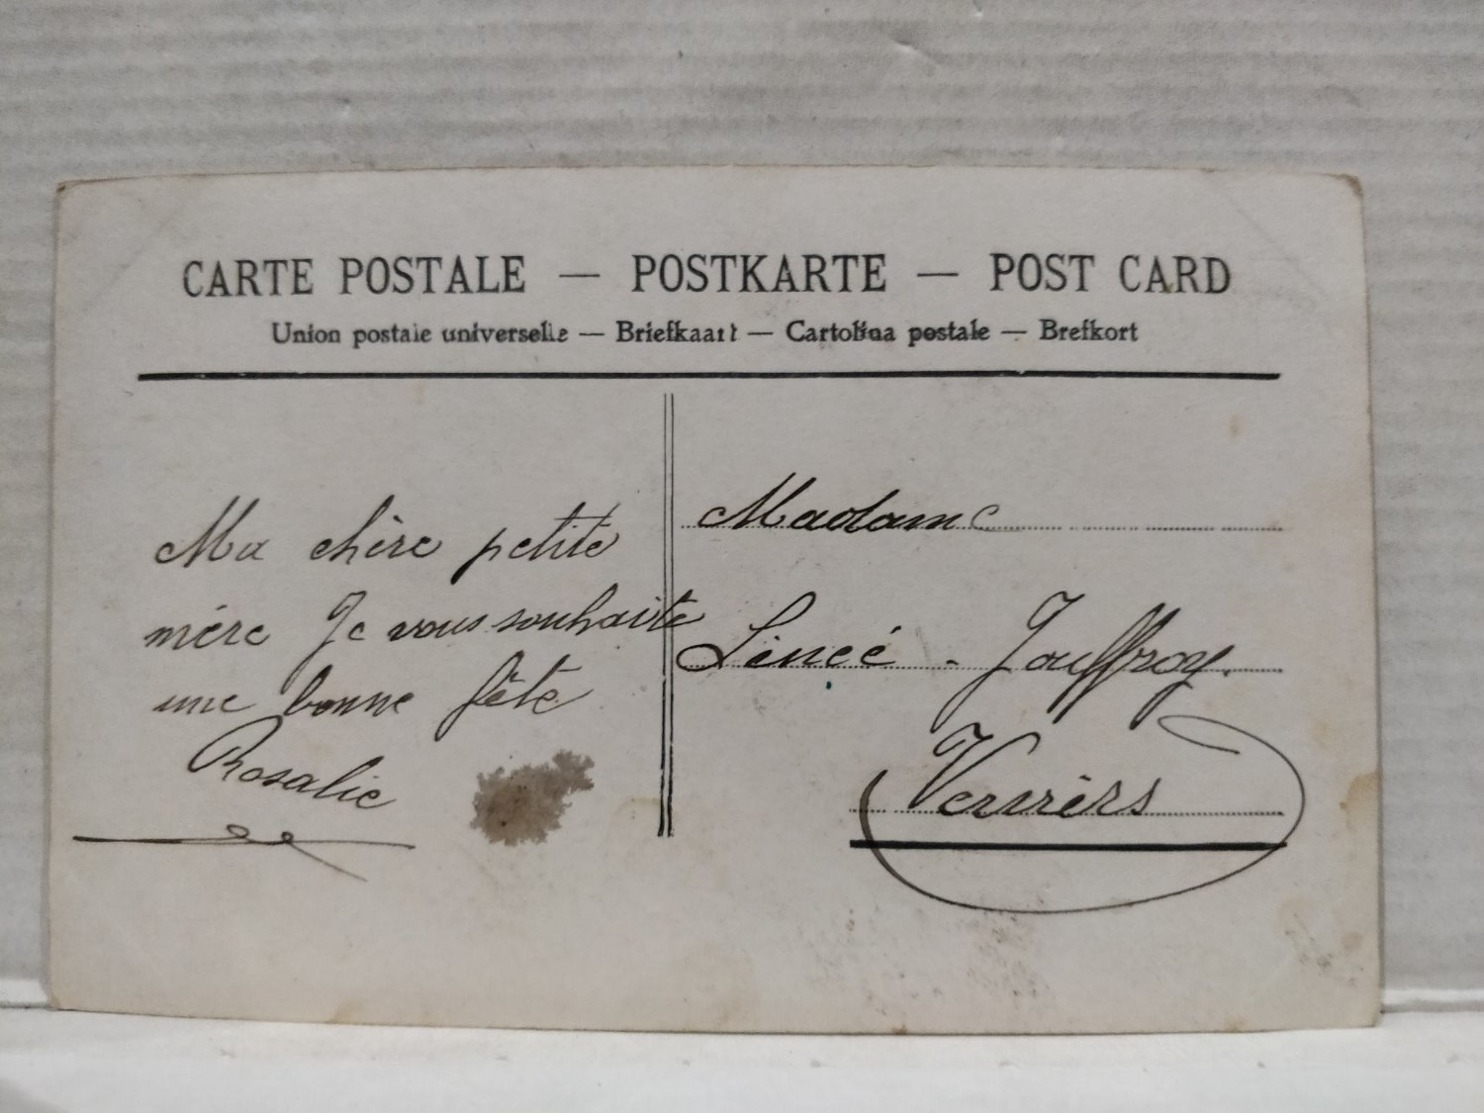 CARTE POSTALE — POSTKARTE — POST CARD
Union postale universelle — Briefkaart — Cartolina postale — Brefkort
Ma chère petite
mère Je vous souhaite
une bonne fête
Rosalie
Madame
Lincé - Jouffroy.
Verviérs